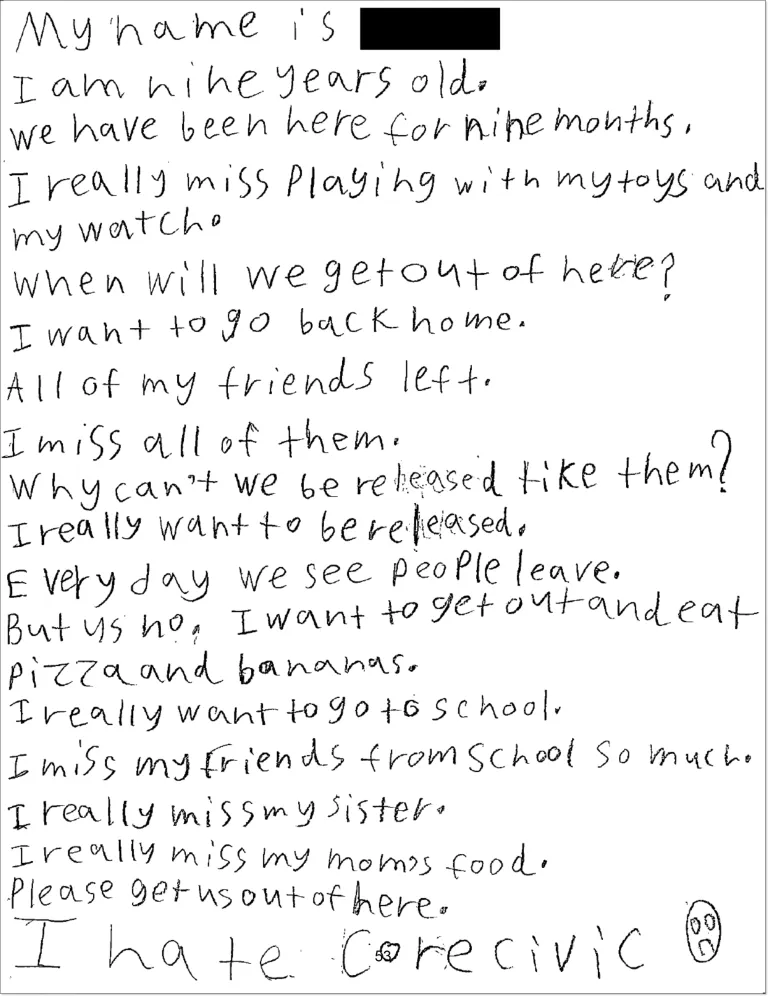 My name is
I am nine years old.
we have been here for nine months.
I really miss playing with my toys and
my watch.
When will we get out of here?
I want to go back home.
All of my friends left.
I miss all of them.
Why can't we be released like them?
I really want to be released.
Every day we see people leave.
But us no. I want to get out and eat
pizza and bananas.
I really want to go to school.
I miss my friends from school so much.
I really miss my sister.
I really miss my mom's food.
Please get us out of here.
I hate Corecivic
53